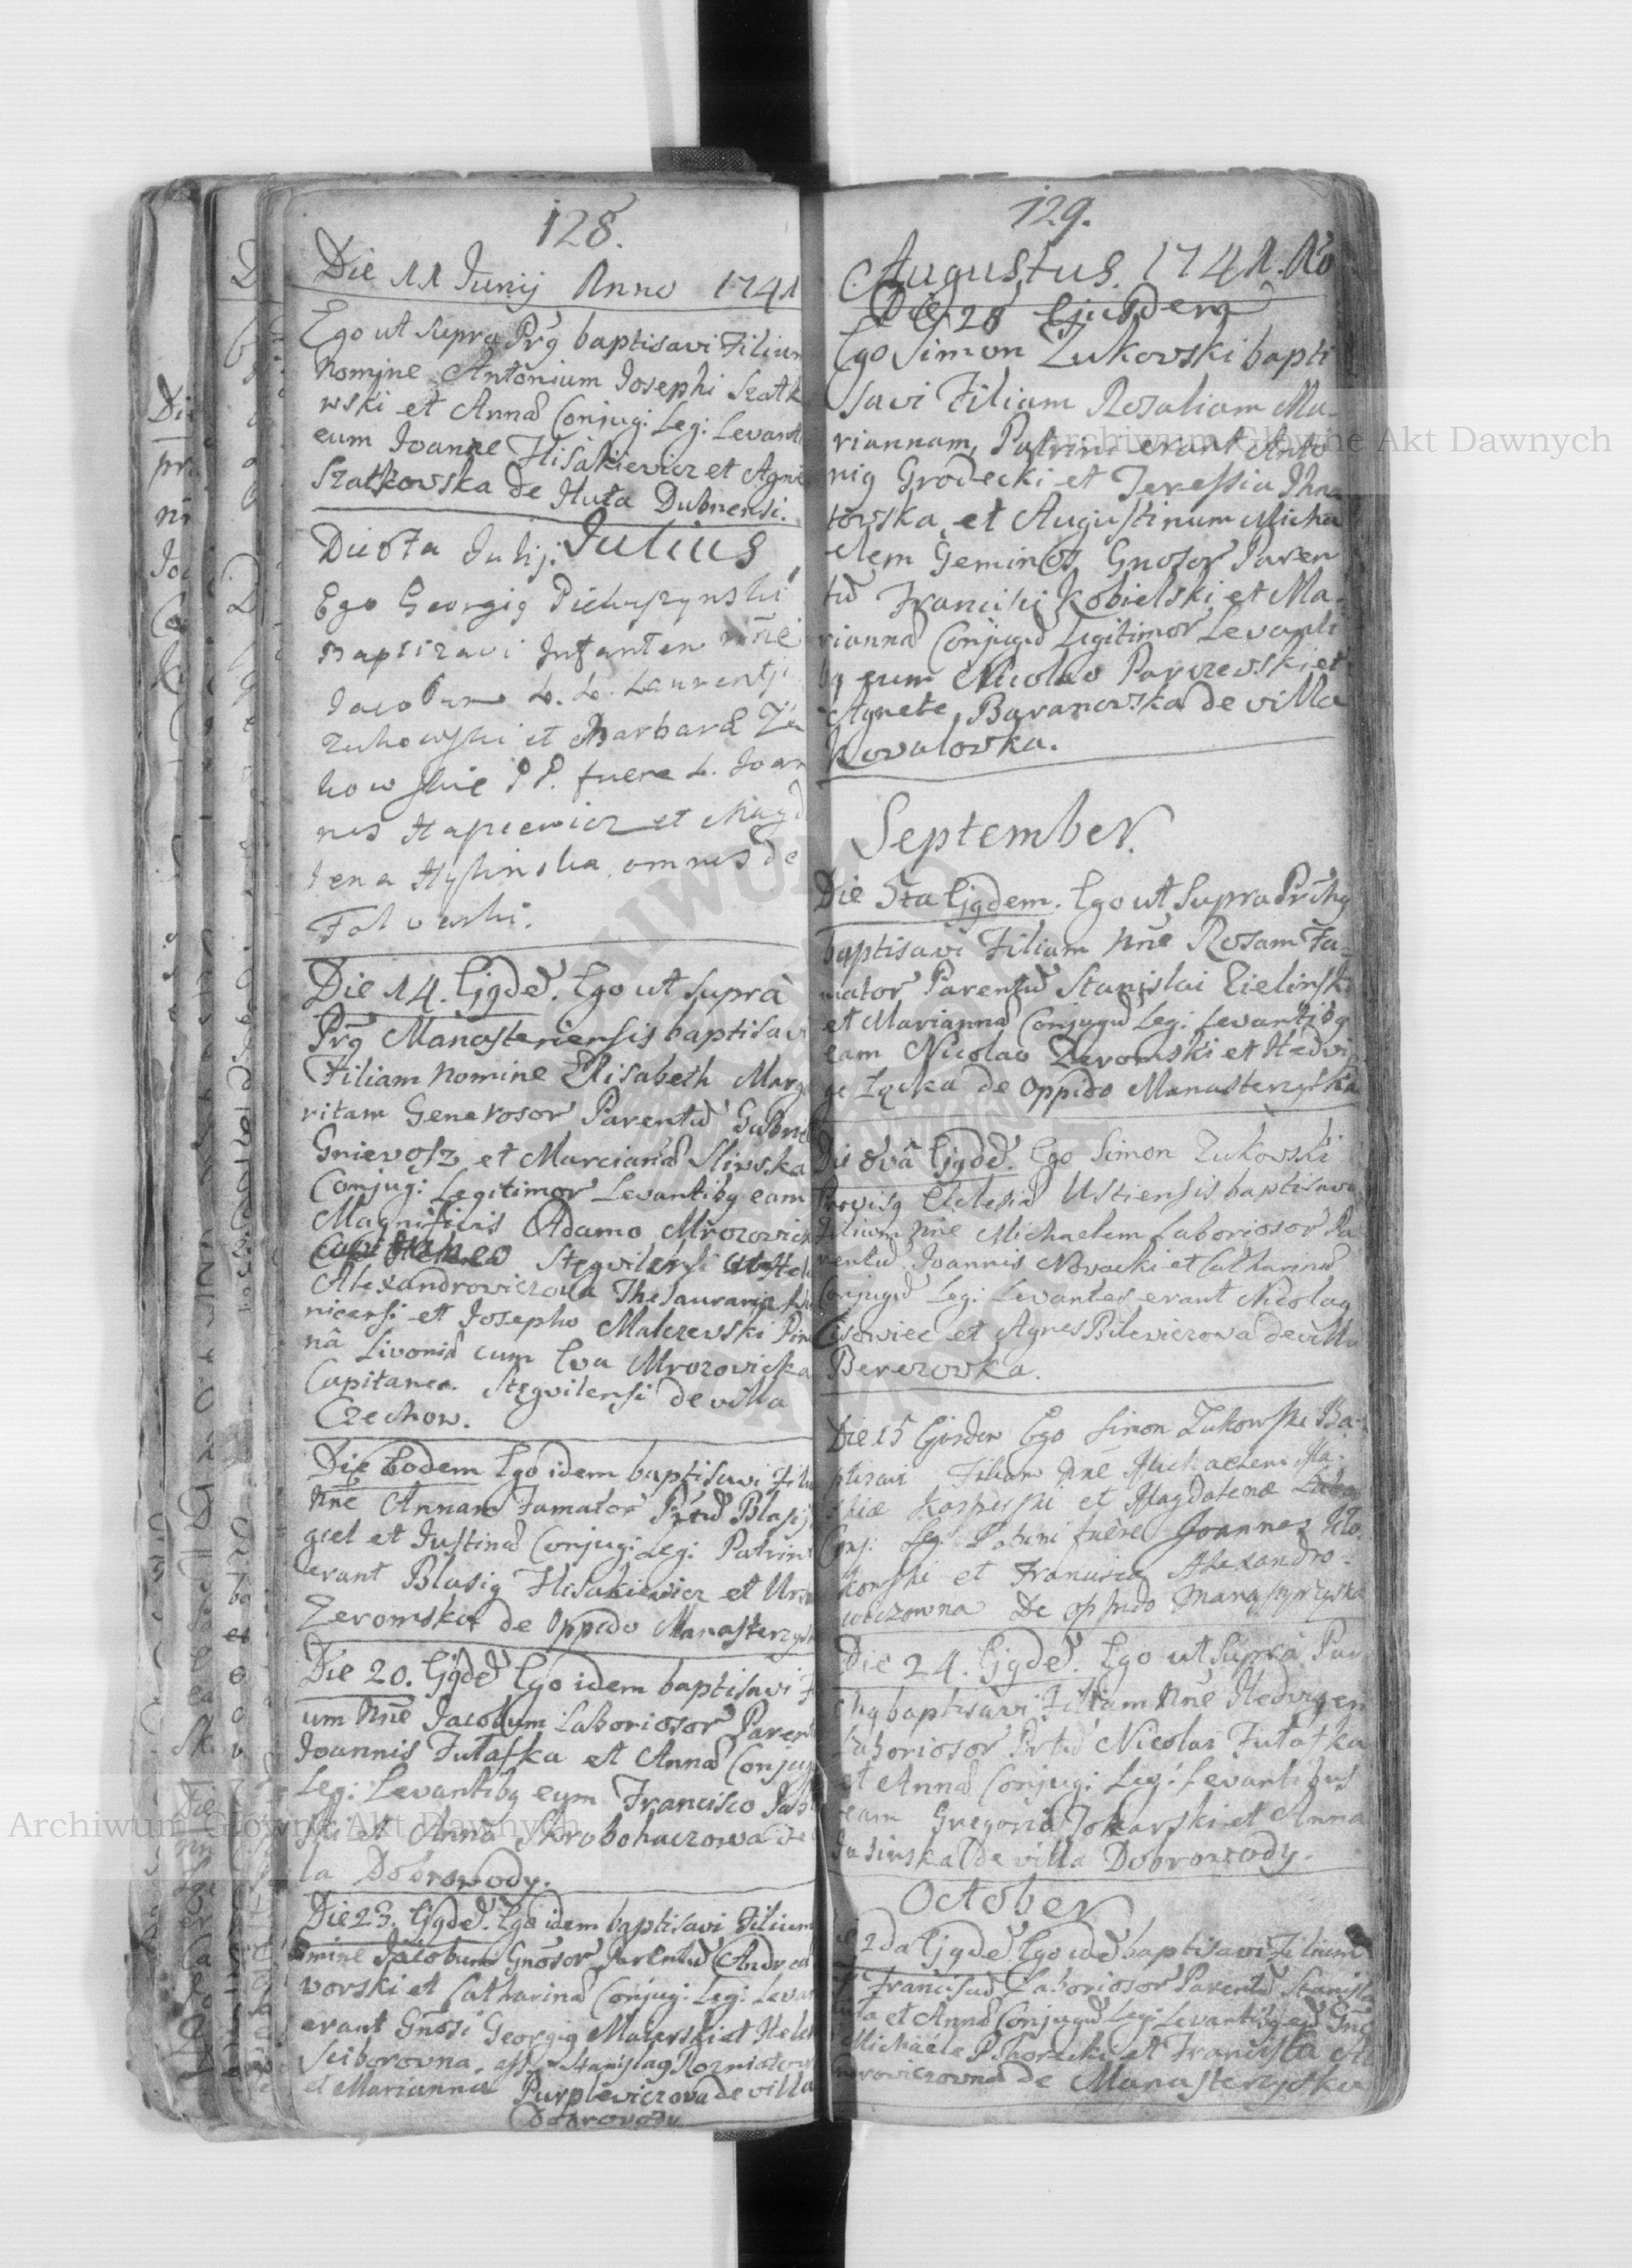 128.
Die 11 Junij Anno 1741
Ego ut supra Prg baptisavi Filium
Nomine Antonium Josephi Szatk
wski et Anna Conjug: Leg: Levanti
eum Joanne Hisakiewicz et Agne
Szatkowska de Huta Dubnensi.
Die 8va Julij. Julius
Ego Georgig
Baptizavi Infantem nne
Jacobum L. L. Laurentji
Zukowski et Barbara Zu
kowskie P P. fuere L. Joan
nes Hapiewicz et Magd
lena omnes de
Folwarki.
Die 14. Ejgde. Ego ut supra
Prg Manasteriensis baptisavi
Filiam Nomine Elisabeth Marga
ritam Generosor Parentu Gabriel
Gnievosz et Marciana Slivska
Conjug: Legitimor Levantibg eam
Magnificis Adamo Mrozovick
Stegvilensi
Alexandroviczova Thesauraria
nicensi et Josepho Malczevski
na Livonia cum Eva Mrozovicka
Capitanea Stegvilensi de villa
Czechow.
Die Eodem Ego idem baptisavi Filia
Nne Annam Famator Prtu Blasij
giel et Justina Conjug: Leg: Patrini
erant Blasig Hisakievicz et Urs
Zeromska de Oppido Manasterzysk
Die 20. Ejgde Ego idem baptisavi F
um Nne Jacobum Laboriosor Parent
Joannis Futatka et Anna Conjug
Leg: Levantibg eum Francisco Jab
ski et Anna Skrobohaczowa de
la Dobrowody.
Die 23. Ejgde. Ego idem baptisavi Filium
mine Jacobum Gnosor Parentu Andrea
vorski et Catharina Conjug: Leg: Levan
erant Gnosi Georgig Majerski et Hele
Sciborovna, ass: Stanislag Rozniatow
et Marianna Purplewiczova de villa
Dobrovody
129.
Augustus. 1741. Ao
Die 28 Ejusdem
Ego Simon Zukovski bapti
savi Filiam Rosaliam Ma-
riannam, Patrini erant Anto
nig Grodecki et Teressia Ihna
towska, et Augustinum Micha
elem Geminos Gnosor Paren
tu Francisci Kobielski et Ma-
rianna Conjugu Legitimor Levanti
bg eum Nicolao Parczevski et
Agnete Baranowska de villa
Kovalowka.
September.
Die 5ta Ejgdem. Ego ut Supra Prchg
baptisavi Filiam Nne Rosam Fa-
mator Parentu Stanislai Zielinski
et Marianna Conjugu Leg: Levantibg
eam Nicolao Zeromski et Hedvi
ge Łącka de Oppido Manasterzyska
Die 8va Ejgde. Ego Simon Zukovski
Provisg Eclesia Ustiensis, baptisavi
Filium Nne Michaelem Laboriosor Pa
rentu Joannis Novacki et Catharina
Conjugu Leg: Levantes erant Nicolag
Cisowiec et Agnes Bilewiczowa de villa
Berezovka.
Die 15 Ejusdem Ego Simon Zukowski Ba-
ptizavi Filium Nne Michaelem Ma-
thiæ Kasperski et Magdalenæ
Conj: Leg: Patrini fuere Joannes Kło
kowski et Francisca Alexandro-
wiczowna De Oppido Manasterzyska
Die 24. Ejgde. Ego ut Supra Par
chg baptisavi Filiam Nne Hedvigem
Laboriosor Prtu Nicolai Futatka
et Anna Conjug: Leg: Levantibus
eam Gregorio Tokarski et Anna
de villa Dobrowody.
October
2da Ejgde Ego ide baptisavi Filium
Franciscu Laboriosor Parentu Stanisla
et Anna Conjugu Leg: Levantibg eu Gne
Michaele et Francisca Al
de Manasterzyska
Archiwum Główne Akt Dawnych
Archiwum Główne Akt Dawnych